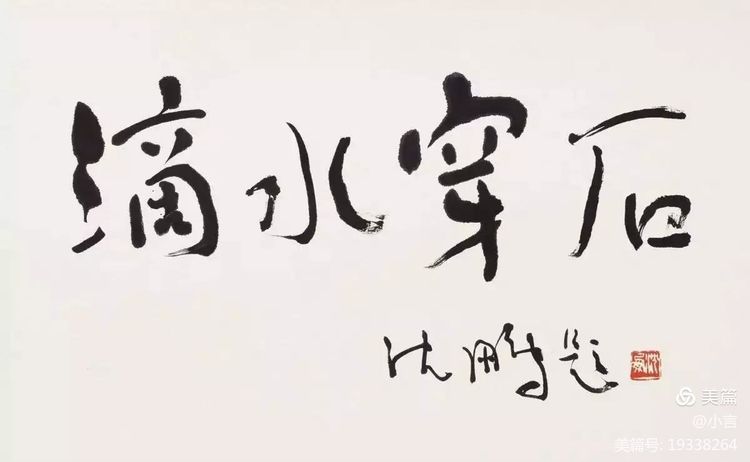 滴水穿石
沈鹏题
美篇
@小言
美篇号: 19338264